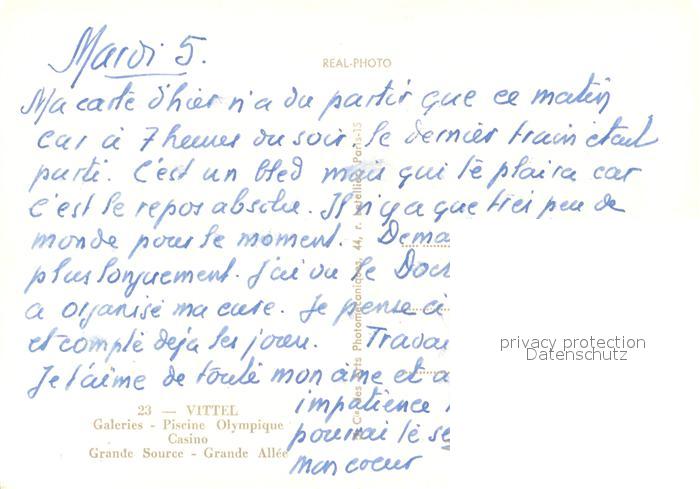 Mardi 5.
REAL-PHOTO
Ma carte d'hier n'a du partir que ce matin
car à 7 heures du soir, le dernier train était
parti. C'est un bled mais qui te plaira car
c'est le repos absolu. Il n'y a que très peu de
monde pour le moment. Dema
plus longuement. J'ai vu le Doct
a organisé ma cure. Je pense à
et compte déjà les jours. Travai
Je t'aime de toute mon âme et a
impatience
pourrai te se
mon coeur
23 — VITTEL
Galeries - Piscine Olympique
Casino
Grande Source - Grande Allée
Arts Photomécaniques, 44, r. Paris-15
privacy protection
Datenschutz